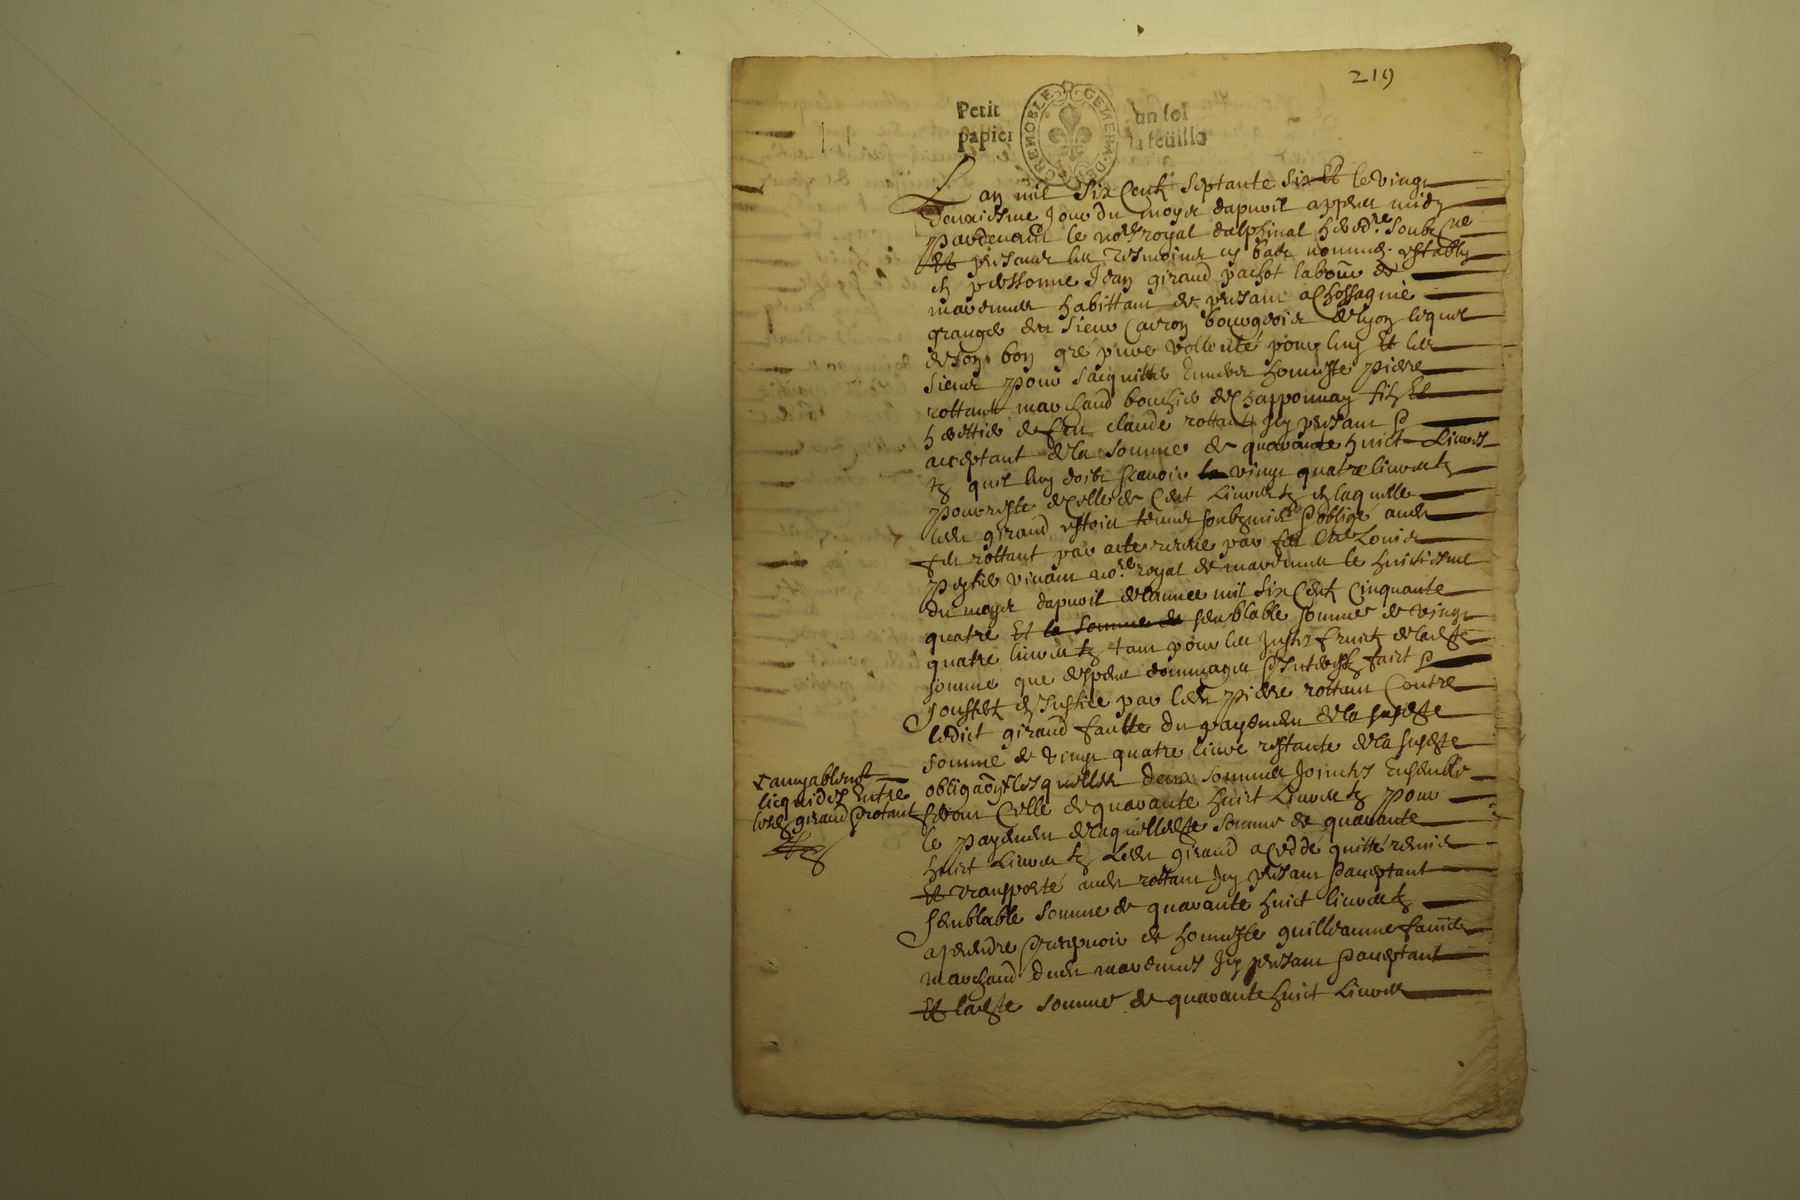 219
Petit un sol
papier la feuille
GRENOBLE GENERA DE
Lan mil six Centz septante six Et le vingt
deuxiesme Jour du moys dapvril appres midy
pardevant le no.re royal dalphinal hered.re soub.ne
Et presens les tesmoins cy bas nommes estably
en personne Jean giraud pachot labour de
marennes habittant de presant a
granger du sieur Carron bourgeois de lyon lequel
de son bon gré pure vollonté pour luy Et les
siens pour sacquitter Envers honneste pierre
rottant marchand bouchier de Chapponnay filz Et
herittier de feu claude rottant Jcy presant &
acceptant de la somme de quarante huict Livres
tz quil luy doibt scavoir la vingt quatre livres tz
pour reste de Celle de Cent Livres tz en laquelle
led giraud estoit tenu soubzmis & obligé aud
feu rottant par acte receu par feu Me Louis
vivant no.re royal de marennes le huictiesme
du moys dapvril de lannee mil six Centz Cinquante
quatre Et la somme de semblable somme de vingt
quatre livres tz tant pour les Justz fruictz de lad.te
somme que despens dommages & Interestz faictz &
soufertz en Justice par led.t pierre rottant Contre
ledict giraud faulte du payement de la susd.te
somme de vingt quatre livre restante de la susd.te
obliga.on lesquelles deux sommes Joinctes Ensemble
font Celle de quarante huict Livres tz pour
le payement de laquelled.te somme de quarante
huict Livres tz Led.t giraud a Ceddé quitté remis
Et transporté aud rottant Jcy presant & acceptant
semblable somme de quarante huict livres tz
a prendre & recepvoir de honneste guilleaume
marchand dud marennes Jcy presant & acceptant
Et lad.te somme de quarante huict Livres
+ amyablement
licquides Entre
lesd giraud & rotant